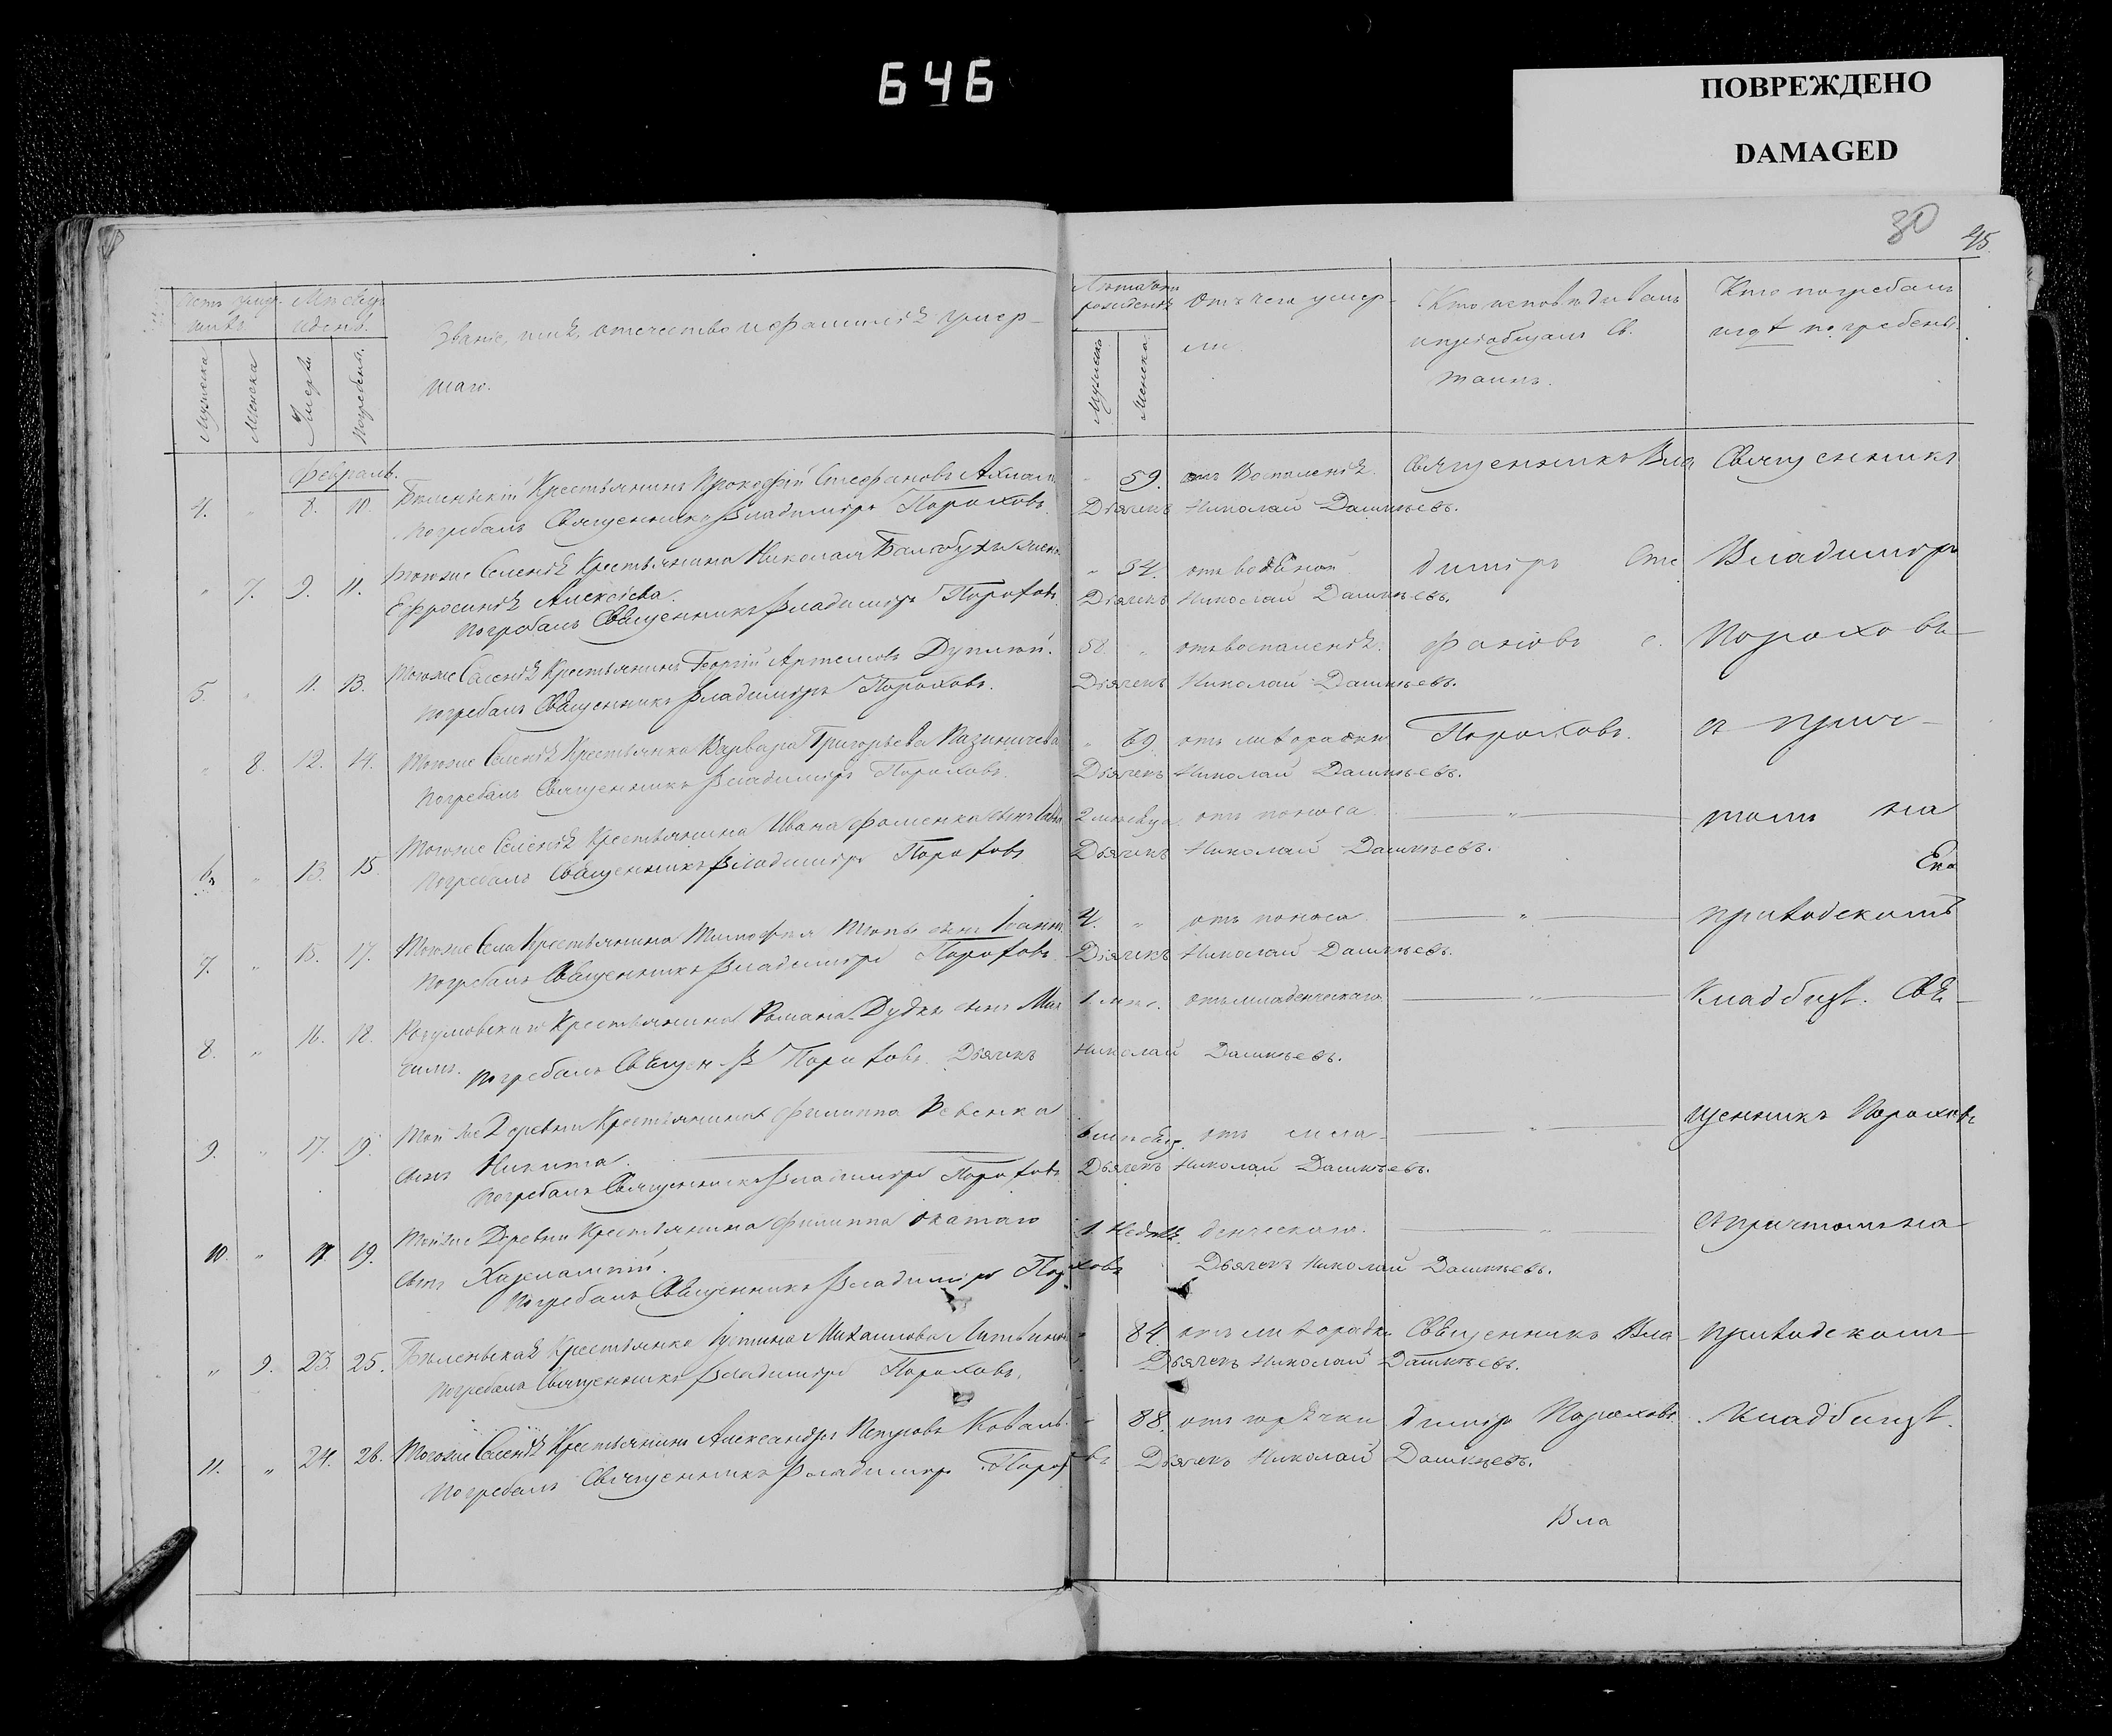 646
ПОВРЕЖДЕНО
DAMAGED
30
45
Счетъ умер- Мѣсяцъ Лѣта Отъ чего умер- Кто исповѣдывалъ Кто погребалъ
шихъ и день. Званіе, имя, отечество и фамилія умер- ли. и пріобщалъ Св. и гдѣ погребены.
шаго. таинъ.
Мужска Женска Смерти Погребенія. Мужска Женска
Февраль.
4. " 8. 10. Бѣленькій Крестьянинъ Прокофій Стефановъ 59. отъ Воспаленія. Священникъ Вла Священникъ
Погребалъ Священникъ Владиміръ Пороховъ. Дьячекъ Николай Дашкѣевъ.
" 7. 9. 11. Тогоже Селенія Крестьянина Николая жена " 54. отъ водяной диміръ Сте Владиміръ
Ефросинія Алексіева.
Погребалъ Священникъ Владиміръ Пороховъ. Дьячекъ Николай Дашкѣевъ.
5. " 11. 13. Тогоже Селенія Крестьянинъ Георгій Артемовъ 58. " отъ воспаленія. фановъ с. Порохо въ
Погребалъ Священникъ Владиміръ Пороховъ. Дьячекъ Николай Дашкѣевъ.
" 8. 12. 14. Тогоже Селенія Крестьянка Варвара Григорьева " 69. отъ лихорадки Пороховъ. съ прич-
Погребалъ Священникъ Владиміръ Пороховъ. Дьячекъ Николай Дашкѣевъ.
6. " 13. 15. Тогоже Селенія Крестьянина Ивана Фоменка сынъ 2 мѣсяца отъ поноса. " томъ на
Погребалъ Священникъ Владиміръ Пороховъ Дьячекъ Николай Дашкѣевъ.
7. " 15. 17. Тогоже Села Крестьянина Тимофея сынъ Іоаннъ 4. " отъ поноса. " приходскомъ
Погребалъ Священникъ Владиміръ Пороховъ. Дьячекъ Николай Дашкѣевъ.
8. " 16. 18. Крестьянина Романа Дудки сынъ Мак 1 мѣс. отъ младенческаго " Кладбищѣ. Свя-
симъ. Погребалъ Священ. В. Пороховъ. Дьячекъ Николай Дашкѣевъ.
9. " 17. 19. Той же Деревни Крестьянина Филиппа Ревенка 6 мѣсяц. отъ мла- " щенникъ Пороховъ
сынъ Никита.
Погребалъ Священникъ Владиміръ Пороховъ Дьячекъ Николай Дашкѣевъ.
10. " 17. 19. Тойже Деревни Крестьянина Филиппа 1. недѣл. денческаго. " съ причтомъ на
сынъ Харлампій.
Погребалъ Священникъ Владиміръ Пороховъ Дьячекъ Николай Дашкѣевъ.
" 9. 23. 25. Бѣленькая Крестьянка Іустина Михаилова " 84. отъ лихорадки Священникъ Вла- приходскомъ
Погребалъ Священникъ Владиміръ Пороховъ. Дьячекъ Николай Дашкѣевъ.
11. " 24. 26. Тогоже Селенія Крестьянинъ Александръ Петровъ Коваль. 88. отъ горячки диміръ Пороховъ. Кладбищѣ.
Погребалъ Священникъ Владиміръ Пороховъ Дьячекъ Николай Дашкѣевъ.
Вла